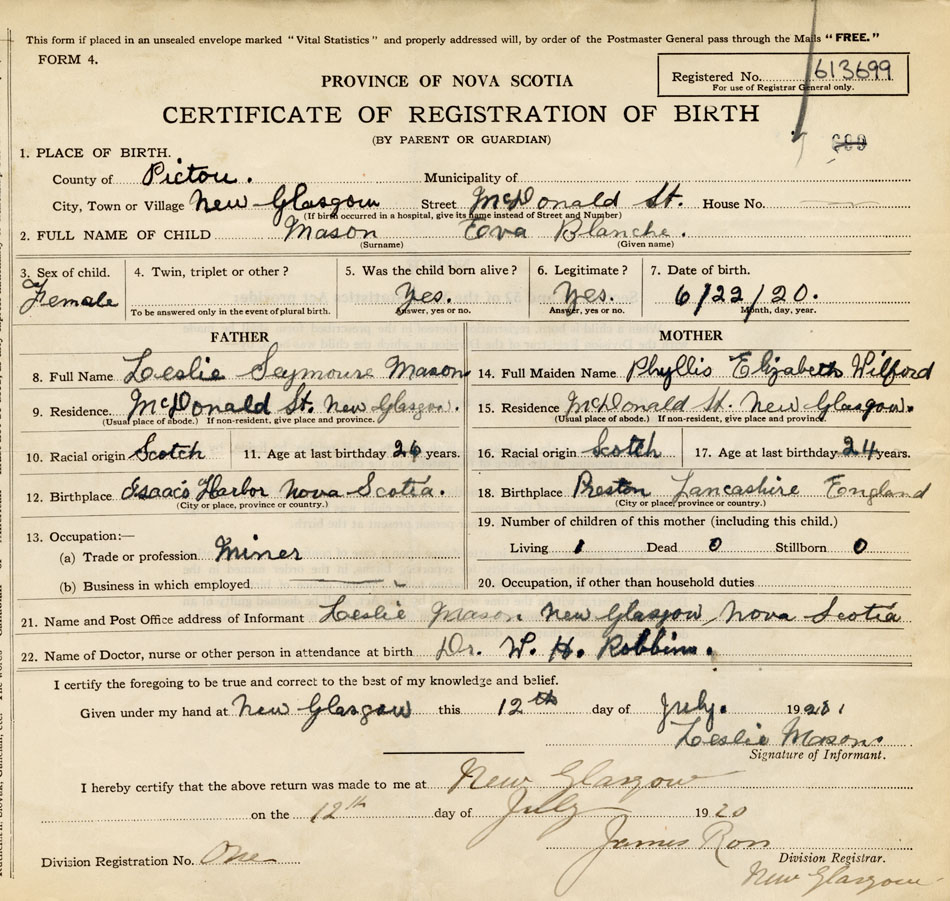 This form if placed in an unsealed envelope marked "Vital Statistics" and properly addressed will, by order of the Postmaster General pass through the Mails "FREE."
FORM 4.
Registered No. 613699
For use of Registrar General only.
PROVINCE OF NOVA SCOTIA
CERTIFICATE OF REGISTRATION OF BIRTH
(BY PARENT OR GUARDIAN)
1. PLACE OF BIRTH.
County of Pictou. Municipality of
City, Town or Village New Glasgow Street McDonald St. House No.
(If birth occurred in a hospital, give its name instead of Street and Number)
2. FULL NAME OF CHILD Mason Eva Blanche.
(Surname) (Given name)
3. Sex of child. 4. Twin, triplet or other? 5. Was the child born alive? 6. Legitimate? 7. Date of birth.
Female Yes. Yes. 6/22/20.
To be answered only in the event of plural birth. Answer, yes or no. Answer, yes or no. Month, day, year.
FATHER MOTHER
8. Full Name Leslie Seymoure Mason 14. Full Maiden Name Phyllis Elizabeth Wilford
9. Residence. McDonald St. New Glasgow. 15. Residence McDonald St. New Glasgow.
(Usual place of abode.) If non-resident, give place and province. (Usual place of abode.) If non-resident, give place and province.
10. Racial origin Scotch 11. Age at last birthday 26 years. 16. Racial origin Scotch 17. Age at last birthday 24 years.
12. Birthplace Isaacs Harbor Nova Scotia. 18. Birthplace Preston Lancashire England
(City or place, province or country.) (City or place, province or country.)
13. Occupation:— 19. Number of children of this mother (including this child.)
(a) Trade or profession Miner Living 1 Dead 0 Stillborn 0
(b) Business in which employed 20. Occupation, if other than household duties
21. Name and Post Office address of Informant Leslie Mason New Glasgow, Nova Scotia
22. Name of Doctor, nurse or other person in attendance at birth Dr. W. H. Robbins.
I certify the foregoing to be true and correct to the best of my knowledge and belief.
Given under my hand at New Glasgow this 12th day of July. 19
Leslie Mason.
Signature of Informant.
I hereby certify that the above return was made to me at New Glasgow
on the 12th day of July 1920
James Ross
Division Registration No. One Division Registrar.
New Glasgow